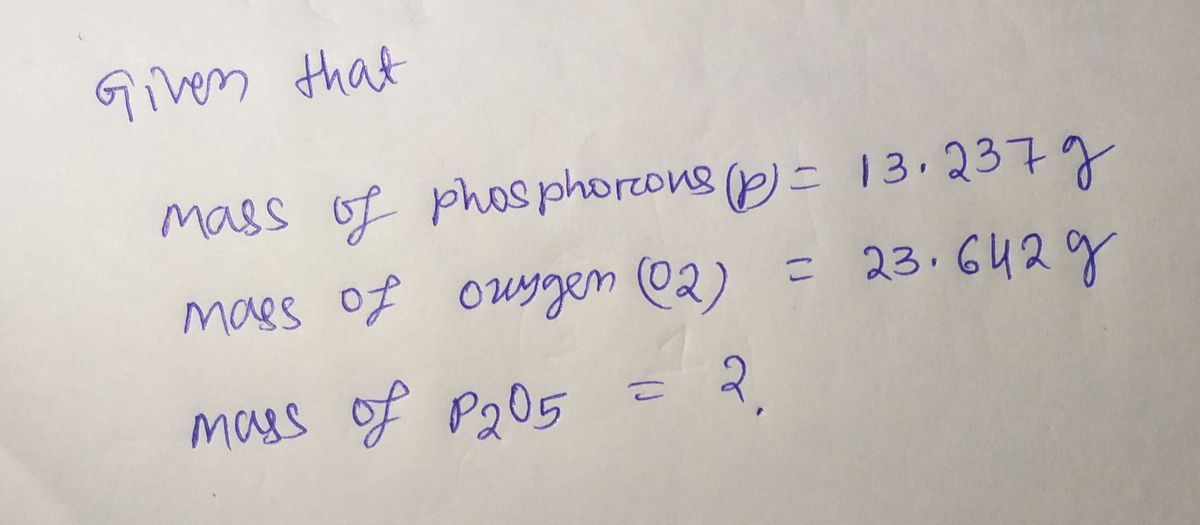 Given that
mass of phosphorcous (p) = 13.237 g
mass of oxygen (O2) = 23.642 g
mass of P2O5 = ?